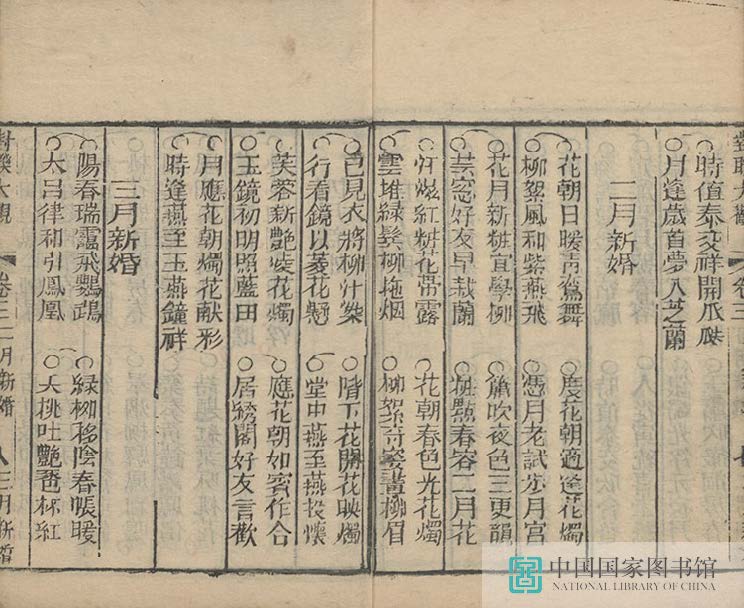 對聯大觀
卷三
時值泰交祥開瓜瓞
月逢歲首夢入芝蘭
二月新婚
花朝日暖青鸞舞
度花朝適逢花燭
柳絮風和紫燕飛
憑月老試步月宮
花月新粧宜學柳
簫吹夜色三更韻
芸窓好友早栽蘭
粧點春容二月花
汗滋紅粉花常露
花朝春色光花燭
雲堆綠髩柳拖烟
柳絮奇姿畫柳眉
已見衣將柳汁染
階下花開花映燭
行看鏡以菱花懸
堂中燕至燕投懷
芙蓉新艷裝花燭
應花朝如賓作合
玉鏡初明照藍田
居綉閣好友言歡
月應花朝燭花献彩
時逢燕至玉燕鐘祥
三月新婚
陽春瑞靄飛鸚鵡
綠柳移陰春帳暖
太呂律和引鳳凰
夭桃吐艷卺杯紅
對聯大觀
卷三二月新婚
八三月新婚
中国国家图书馆
NATIONAL LIBRARY OF CHINA